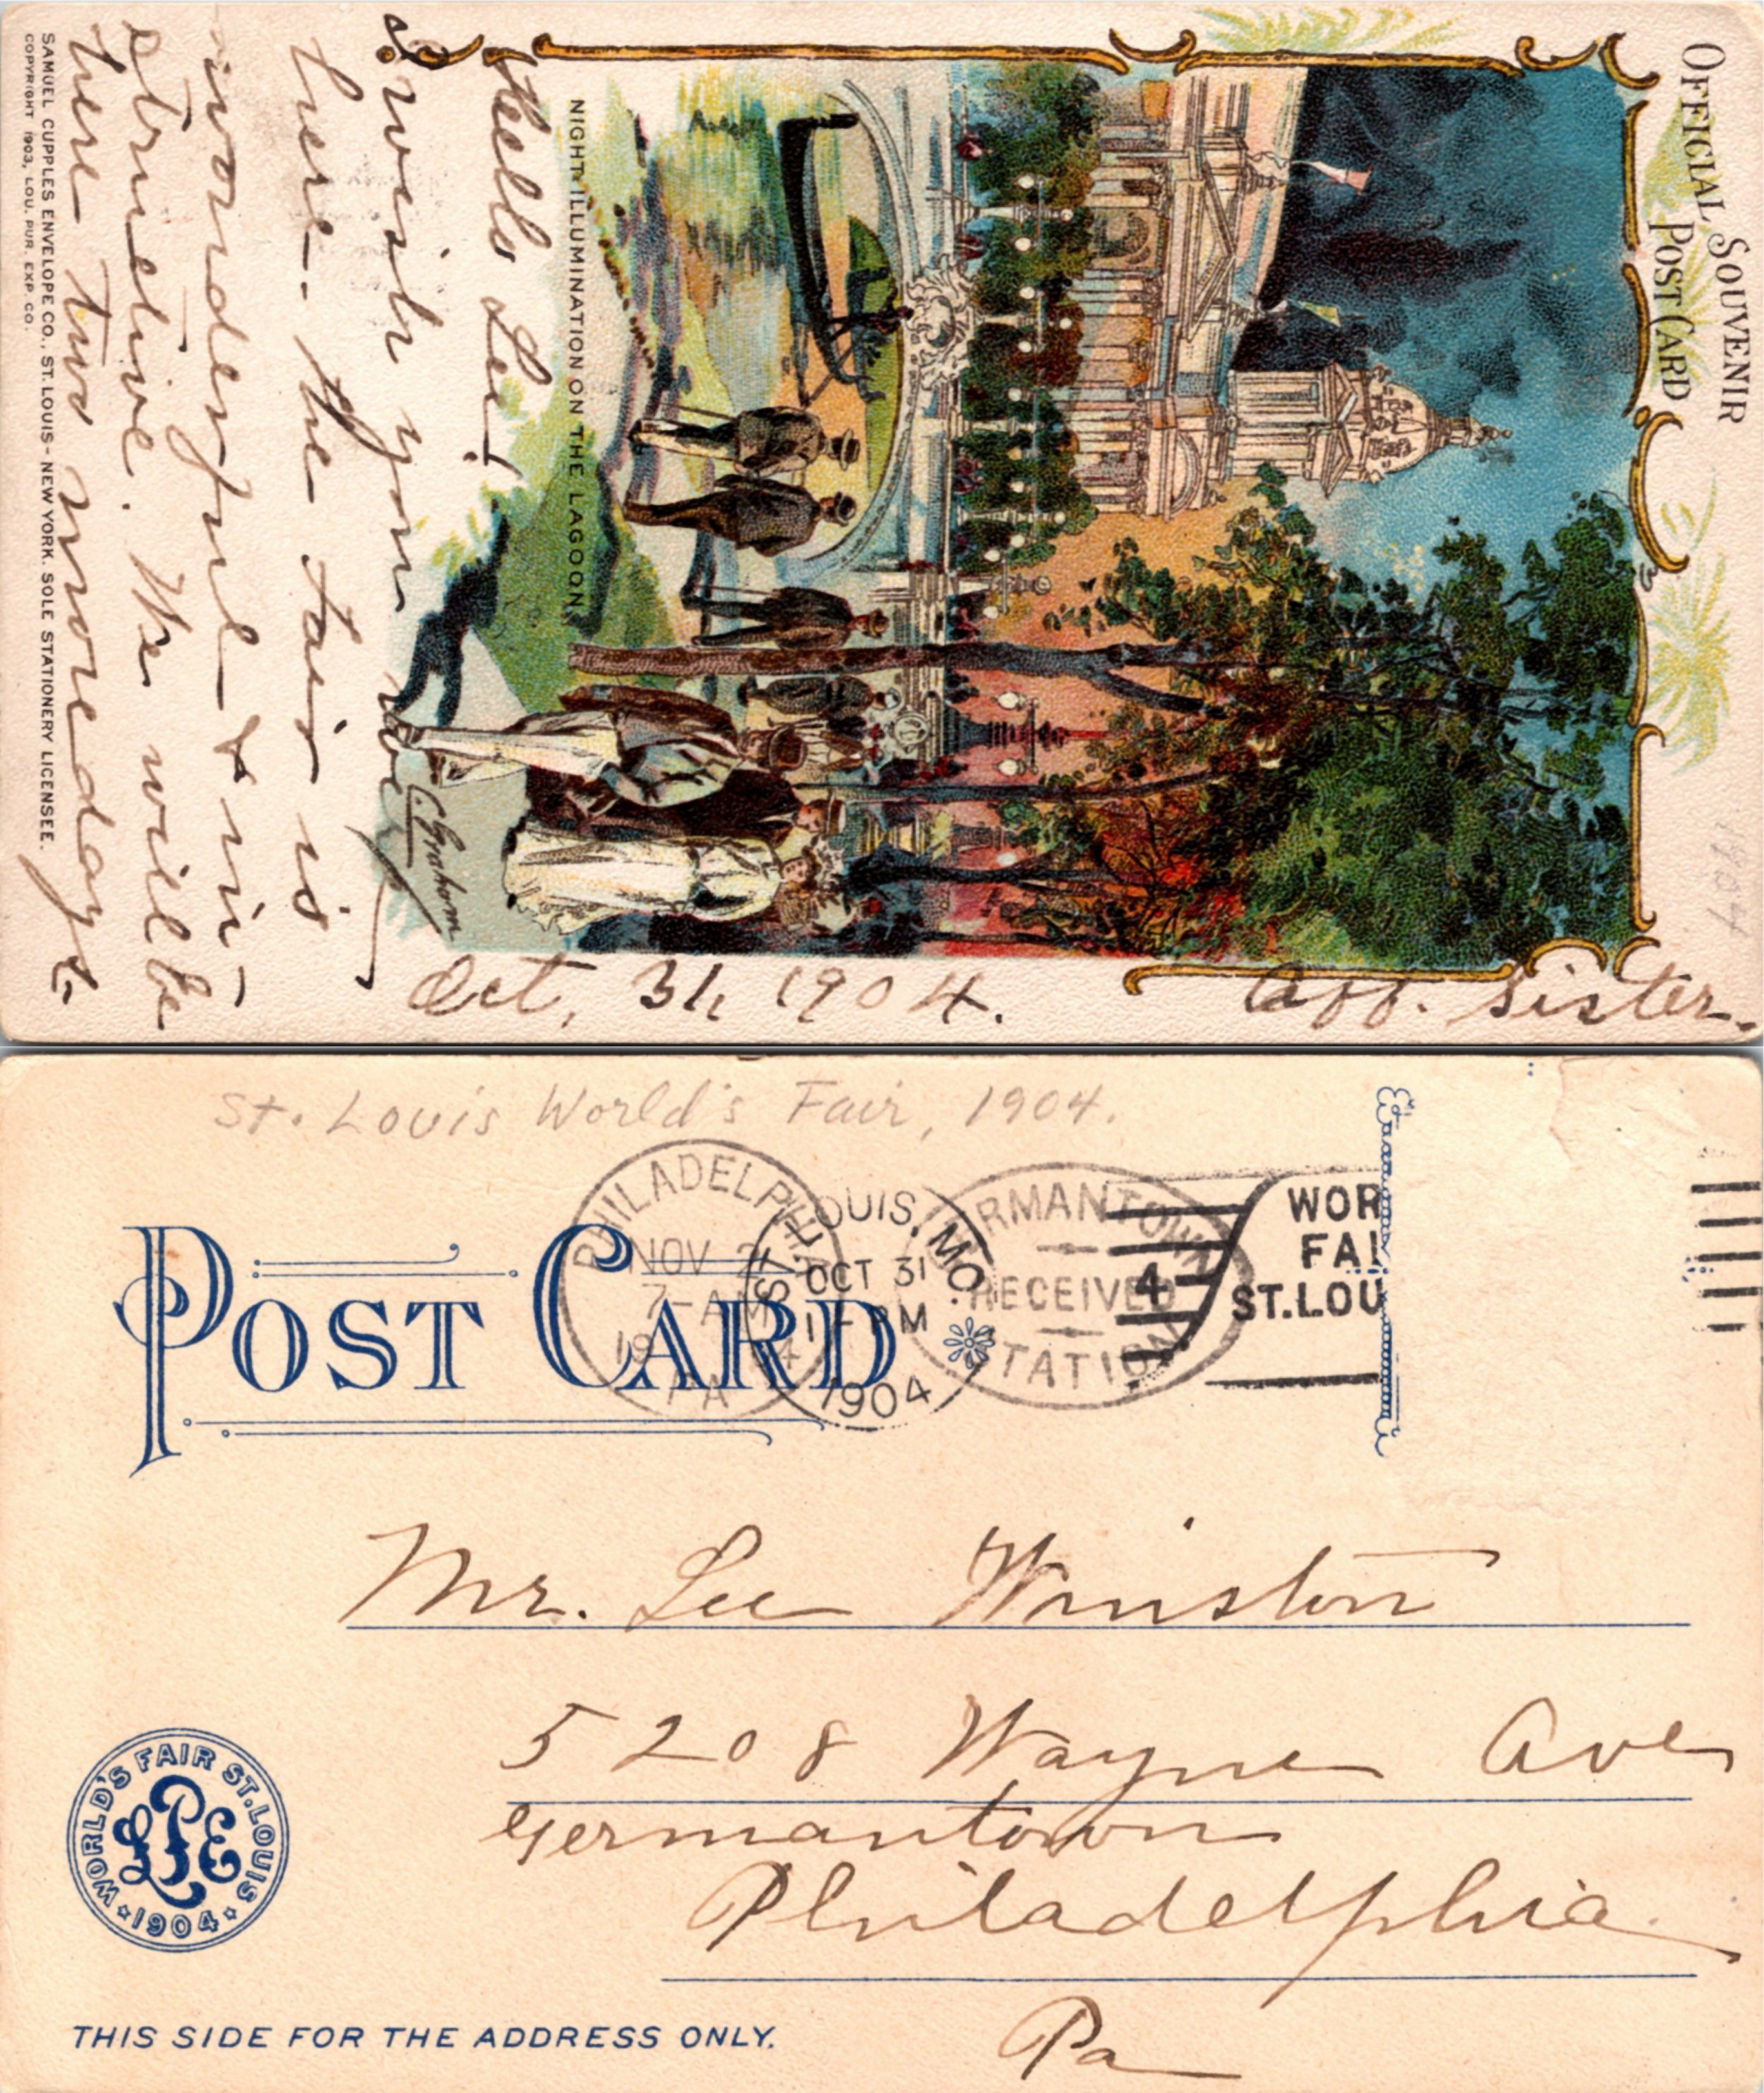 OFFICIAL SOUVENIR
POST CARD
1904
NIGHT ILLUMINATION ON THE LAGOON.
C. Graham
Hello Lee!
I wish you were
here - the fair is
wonderful & in-
structive. We will be
here two more days.
Oct. 31, 1904.
Aff. Sister.
SAMUEL CUPPLES ENVELOPE CO., ST. LOUIS - NEW YORK. SOLE STATIONERY LICENSEE.
COPYRIGHT 1903, LOU. PUR. EXP. CO.
St. Louis World's Fair, 1904.
POST CARD
PHILADELPHIA
NOV 2
7-AM
PA
ST. LOUIS, MO.
OCT 31
1904
RECEIVED
STATION
4
WOR
FAI
ST. LOU
Mr. Lee Winston
5208 Wayne Ave
Germantown
Philadelphia
Pa
WORLD'S FAIR ST. LOUIS
1904
LPE
THIS SIDE FOR THE ADDRESS ONLY.